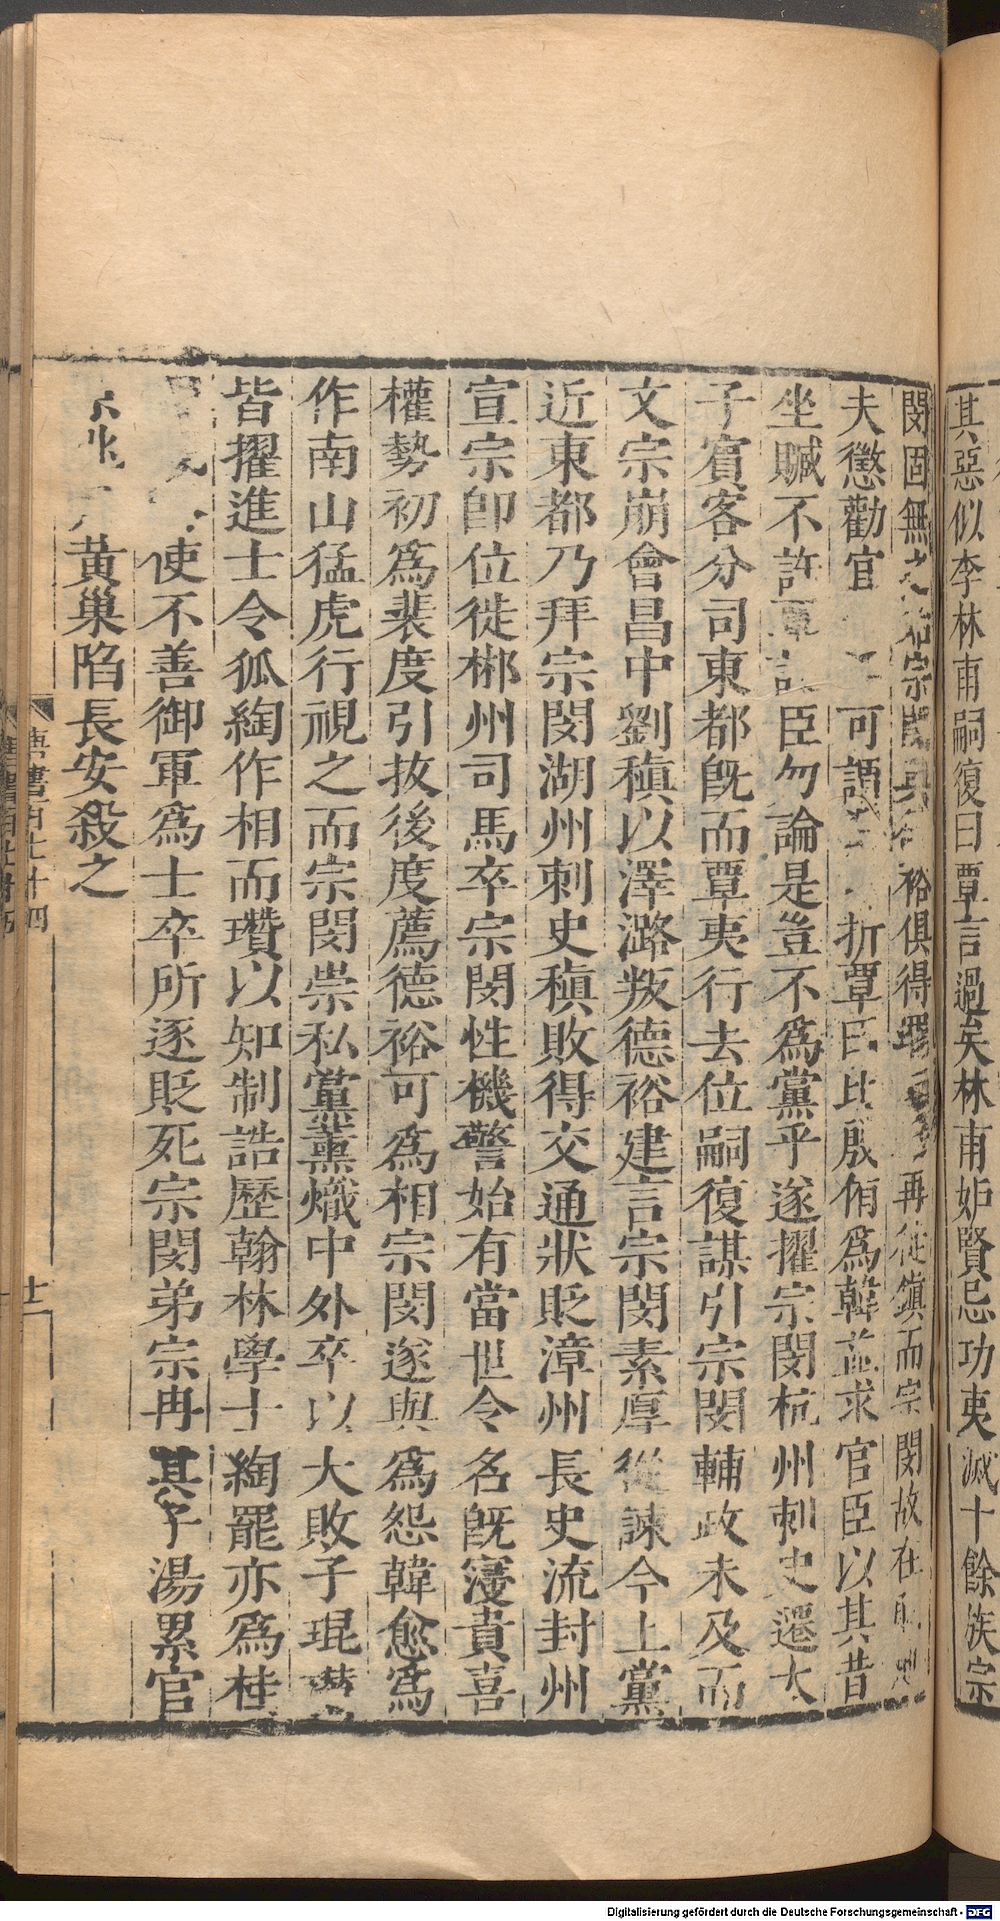 其惡似李林甫嗣復曰覃言過矣林甫妒賢忌功夷滅十餘族宗
閔固無之始宗閔與德裕俱得罪再徙鎮而宗閔故在
夫懲勸官可謂折覃曰比殷侑爲韓益求官臣以其昔
坐贓不許覃託臣勿論是豈不爲黨乎遂擢宗閔杭州刺史遷太
子賓客分司東都既而覃夷行去位嗣復謀引宗閔輔政未及而
文宗崩會昌中劉稹以澤潞叛德裕建言宗閔素厚從諫今上黨
近東都乃拜宗閔湖州刺史稹敗得交通狀貶漳州長史流封州
宣宗即位徙郴州司馬卒宗閔性機警始有當世令名既寖貴喜
權勢初爲裴度引拔後度薦德裕可爲相宗閔遂與爲怨韓愈爲
作南山猛虎行視之而宗閔崇私黨薰熾中外卒以大敗子琨瓚
皆擢進士令狐綯作相而瓚以知制誥歷翰林學士綯罷亦爲桂
使不善御軍爲士卒所逐貶死宗閔弟宗冉其子湯累官
京兆黃巢陷長安殺之
唐書百七十四
十一
Digitalisierung gefördert durch die Deutsche Forschungsgemeinschaft - DFG